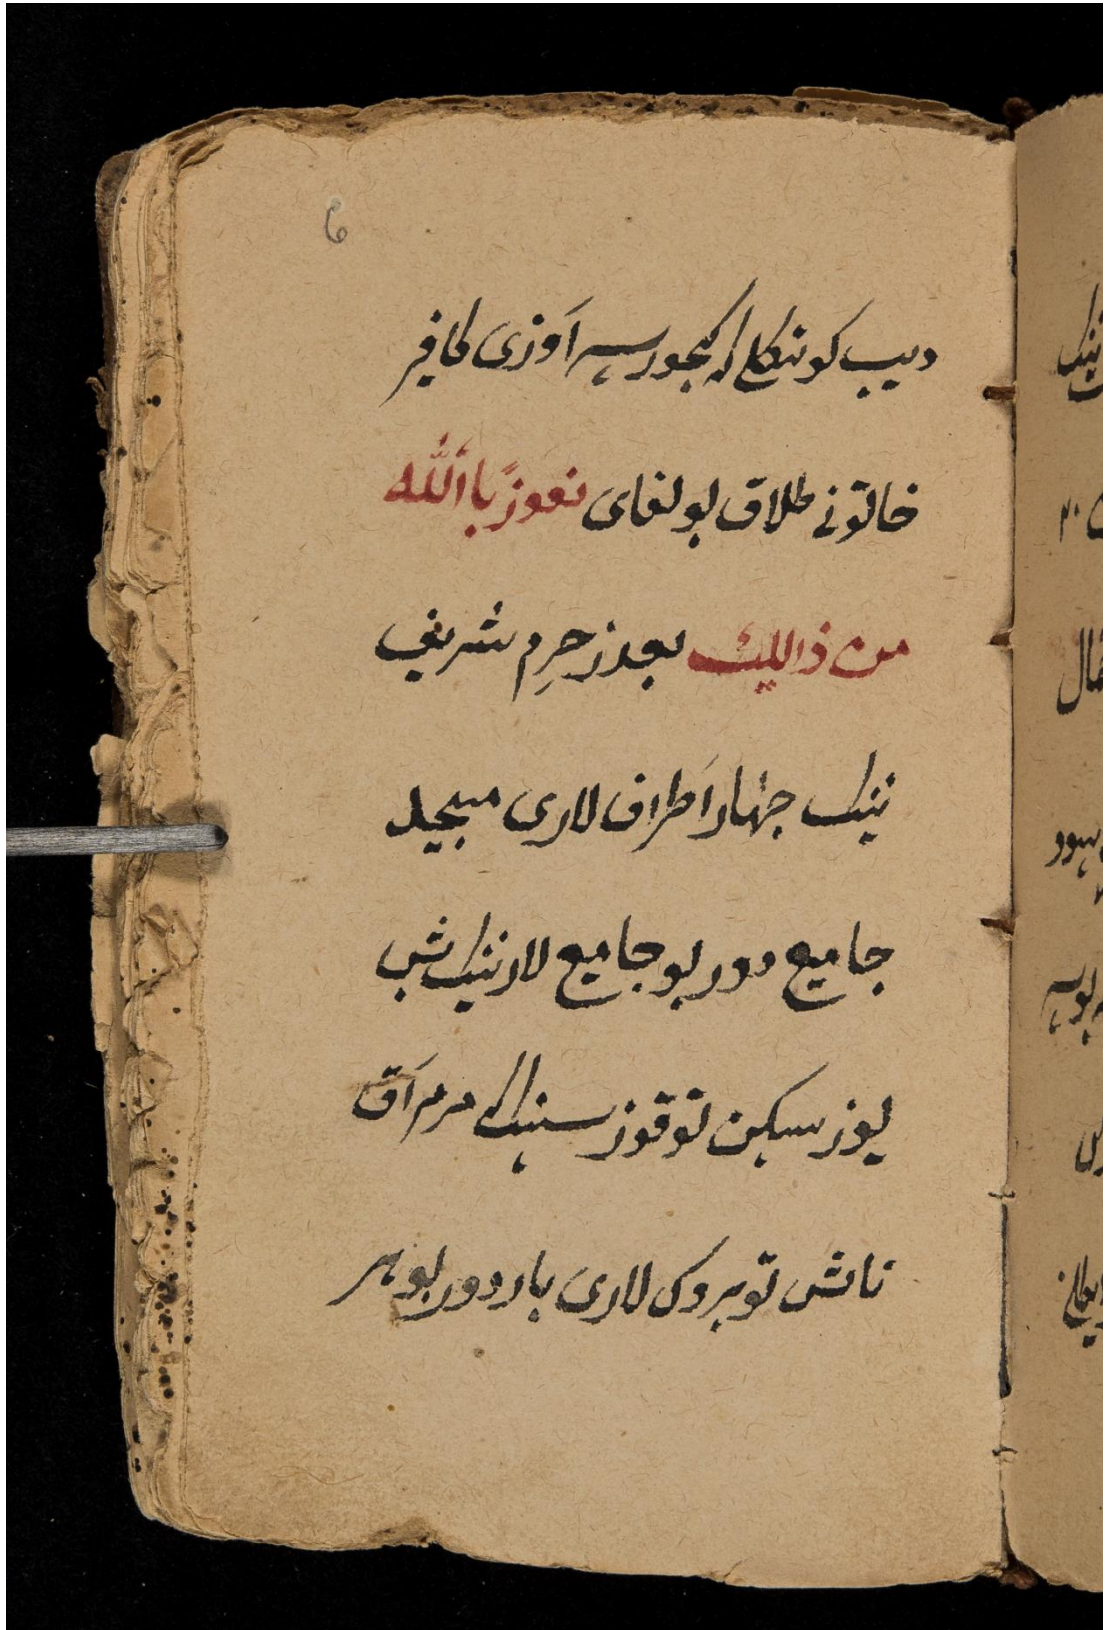 ۶
دیب کونکلیکا کیجورسه اَوزی کافِر
خاتونی طلاق بولغای نعوزً باالله
من ذالیک بعدز حرِم شریف
نینک جهار اَطراف لاری مسجید
جامیع دور بو جامیع لارنینک شِ
یوز سکن توقوز سنکا مرمر اَق
تاش توبروک لاری باردور بو هر